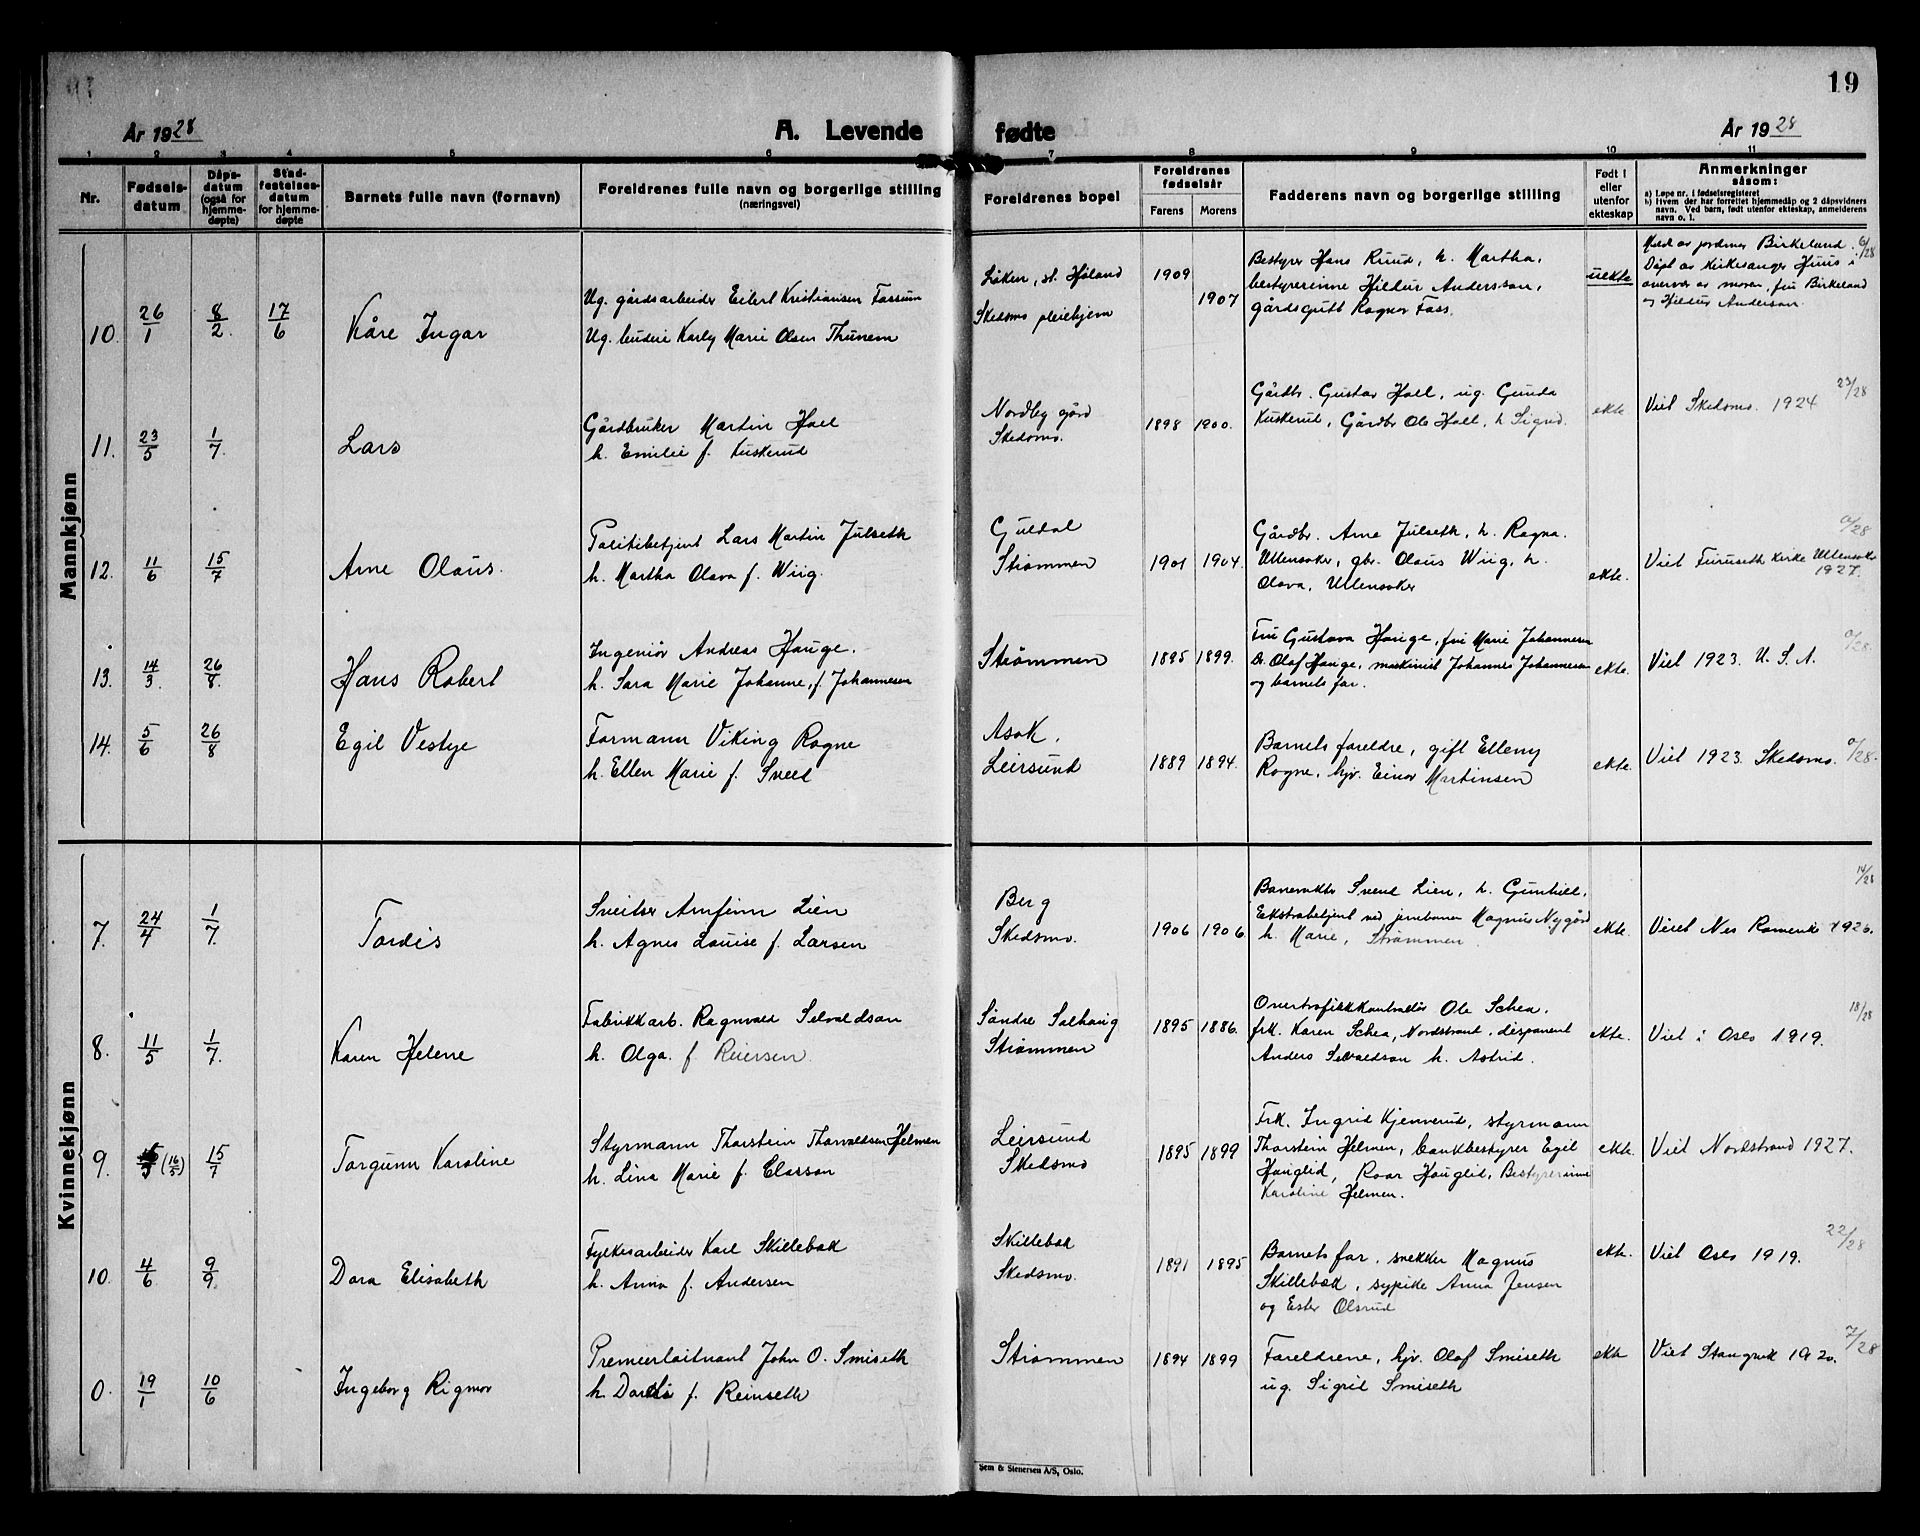 19
År 1928
A. Levende fødte
År 1928
1 2 3 4 5 6 7 8 9 10 11
Nr.
Fødsels-
datum
Dåps-
datum
(også for
hjemme-
døpte)
Stad-
festelses-
datum
for hjemme-
døpte
Barnets fulle navn (fornavn)
Foreldrenes fulle navn og borgerlige stilling
(næringsvei)
Foreldrenes bopel
Foreldrenes
fødselsår
Farens
Morens
Fadderens navn og borgerlige stilling
Født i
eller
utenfor
ekteskap
Anmerkninger
såsom:
a) Løpe nr. i fødselsregisteret
b) Hvem der har forrettet hjemmedåp og 2 dåpsvidners
navn. Ved barn, født utenfor ekteskap, anmelderens
navn o. l.
Mannkjønn
10. 26/1 8/2. 17/6 Kåre Ingar
Ug. gårdsarbeider Eilert Kristiansen Fossum
Ug. budeie Karly Marie Olsen Thunem
Løken, st. Høland
Skedsmo pleiehjem
1909
1907
Bestyrer Hans Ruud, h. Martha,
bestyrerinne Hildur Andersson,
gårdsgutt Ragnar Foss.
uekte
Meldt av jordmor Birkeland. 6/28
Døpt av kirkesanger Huus i
overvær av moren, fru Birkeland
og Hildur Anderson.
11. 23/5 1/7. Lars
Gårdbruker Martin Holl
h. Emilie f. Kuskerud
Nordby gård
Skedsmo.
1898 1900.
Gårdbr. Gustav Holl, ug. Gunda
Kuskerud, Gårdbr Ole Holl, h Sigrid.
ekte
Viet Skedsmo. 1924
23/28
12. 11/6 15/7 Arne Olaus.
Politibetjent Lars Martin Julseth
h. Martha Olava f. Wiig.
Guldal
Strømmen
1901 1904.
Gårdbr. Arne Julseth, h. Ragna.
Ullensaker, gbr. Olaus Wiig, h.
Olava, Ullensaker
ekte.
0/28
Viet Furuseth Kirke Ullensaker
1927.
13. 14/3 26/8. Hans Robert
Ingeniør Andreas Hauge.
h. Sara Marie Johanne, f. Johannesen
Strømmen
1895 1899.
Fru Gustava Hauge, fru Marie Johannesen
Dr. Olaf Hauge, maskinist Johannes Johannesen
og barnets far.
ekte.
Viet 1923. U. S. A.
0/28.
14. 5/6 26/8 Egil Vestye
Formann Viking Rogne
h. Ellen Marie f. Sveel
Asak.
Leirsund
1889 1894.
Barnets foreldre, gift Elleny
Rogne, hjv. Einar Martinsen
ekte.
Viet 1923. Skedsmo.
0/28.
Kvinnekjønn
7. 24/4 1/7. Tordis
Sveitser Arnfinn Lien
h. Agnes Louise f. Larsen
Berg
Skedsmo.
1906 1906.
Banevokter Svend Lien, h. Gunhill,
Ekstrabetjent ved jernbanen Magnus Nygård
h. Marie, Strømmen
ekte.
14/28
Viet Nes Romerike 1926.
8. 11/5 1/7. Karen Helene
Fabrikkarb. Ragnvald Selvaldson
h. Olga. f. Reiersen
Søndre Solhaug
Strømmen
1895 1886.
Overtrafikkkontrollør Ole Schea.
frk. Karen Schea, Nordstrand, disponent
Anders Selvaldson h. Astrid.
ekte.
18/28
Viet i Oslo 1919.
9. (16/5) 15/7 Torgunn Karoline
Styrmann Thorstein Thorvaldsen Helmen
h. Lina Marie f. Claeson
Leirsund
Skedsmo
1895 1899
Frk. Ingrid Kjennerud, styrmann
Thorstein Helmen, bankbestyrer Egil
Hauglid, Roar Hauglid, Bestyrerinne
Karoline Helmen.
ekte.
Viet Nordstrand 1927.
10. 4/6 9/9. Dora Elisabeth
Fylkesarbeider Karl Skillebæk
h. Anna f. Andersen
Skillebæk
Skedsmo.
1891 1895
Barnets far, snekker Magnus
Skillebæk, sypike Anna Jensen
og Ester Olsrud
ekte.
Viet Oslo 1919.
22/28
0. 19/1 10/6 Ingeborg Rigmor
Premierløitnant John O. Smiseth
h. Dordi f. Reinseth
Strømmen
1894 1899
Foreldrene, hjv. Olaf Smiseth
ug. Sigrid Smiseth
ekte
Viet Stangvik 1920.
7/28
Sem & Stenersen A/S, Oslo.